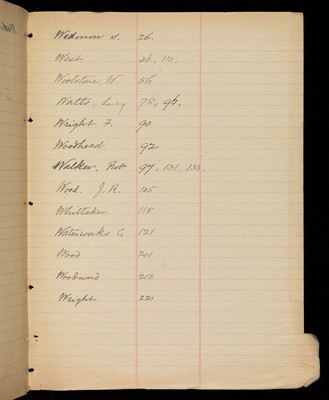 Wedmore W. 26.
West 36, 110.
Woolstone, W 56
Watts, Lucy 78, 96.
Wright F. 90
Woodhead 92
Walker, Robt 97, 131, 133.
Wood, J. R. 105
Whittaker 118
Waterworks Co. 121
Wood 201
Woodward 212
Wright 220